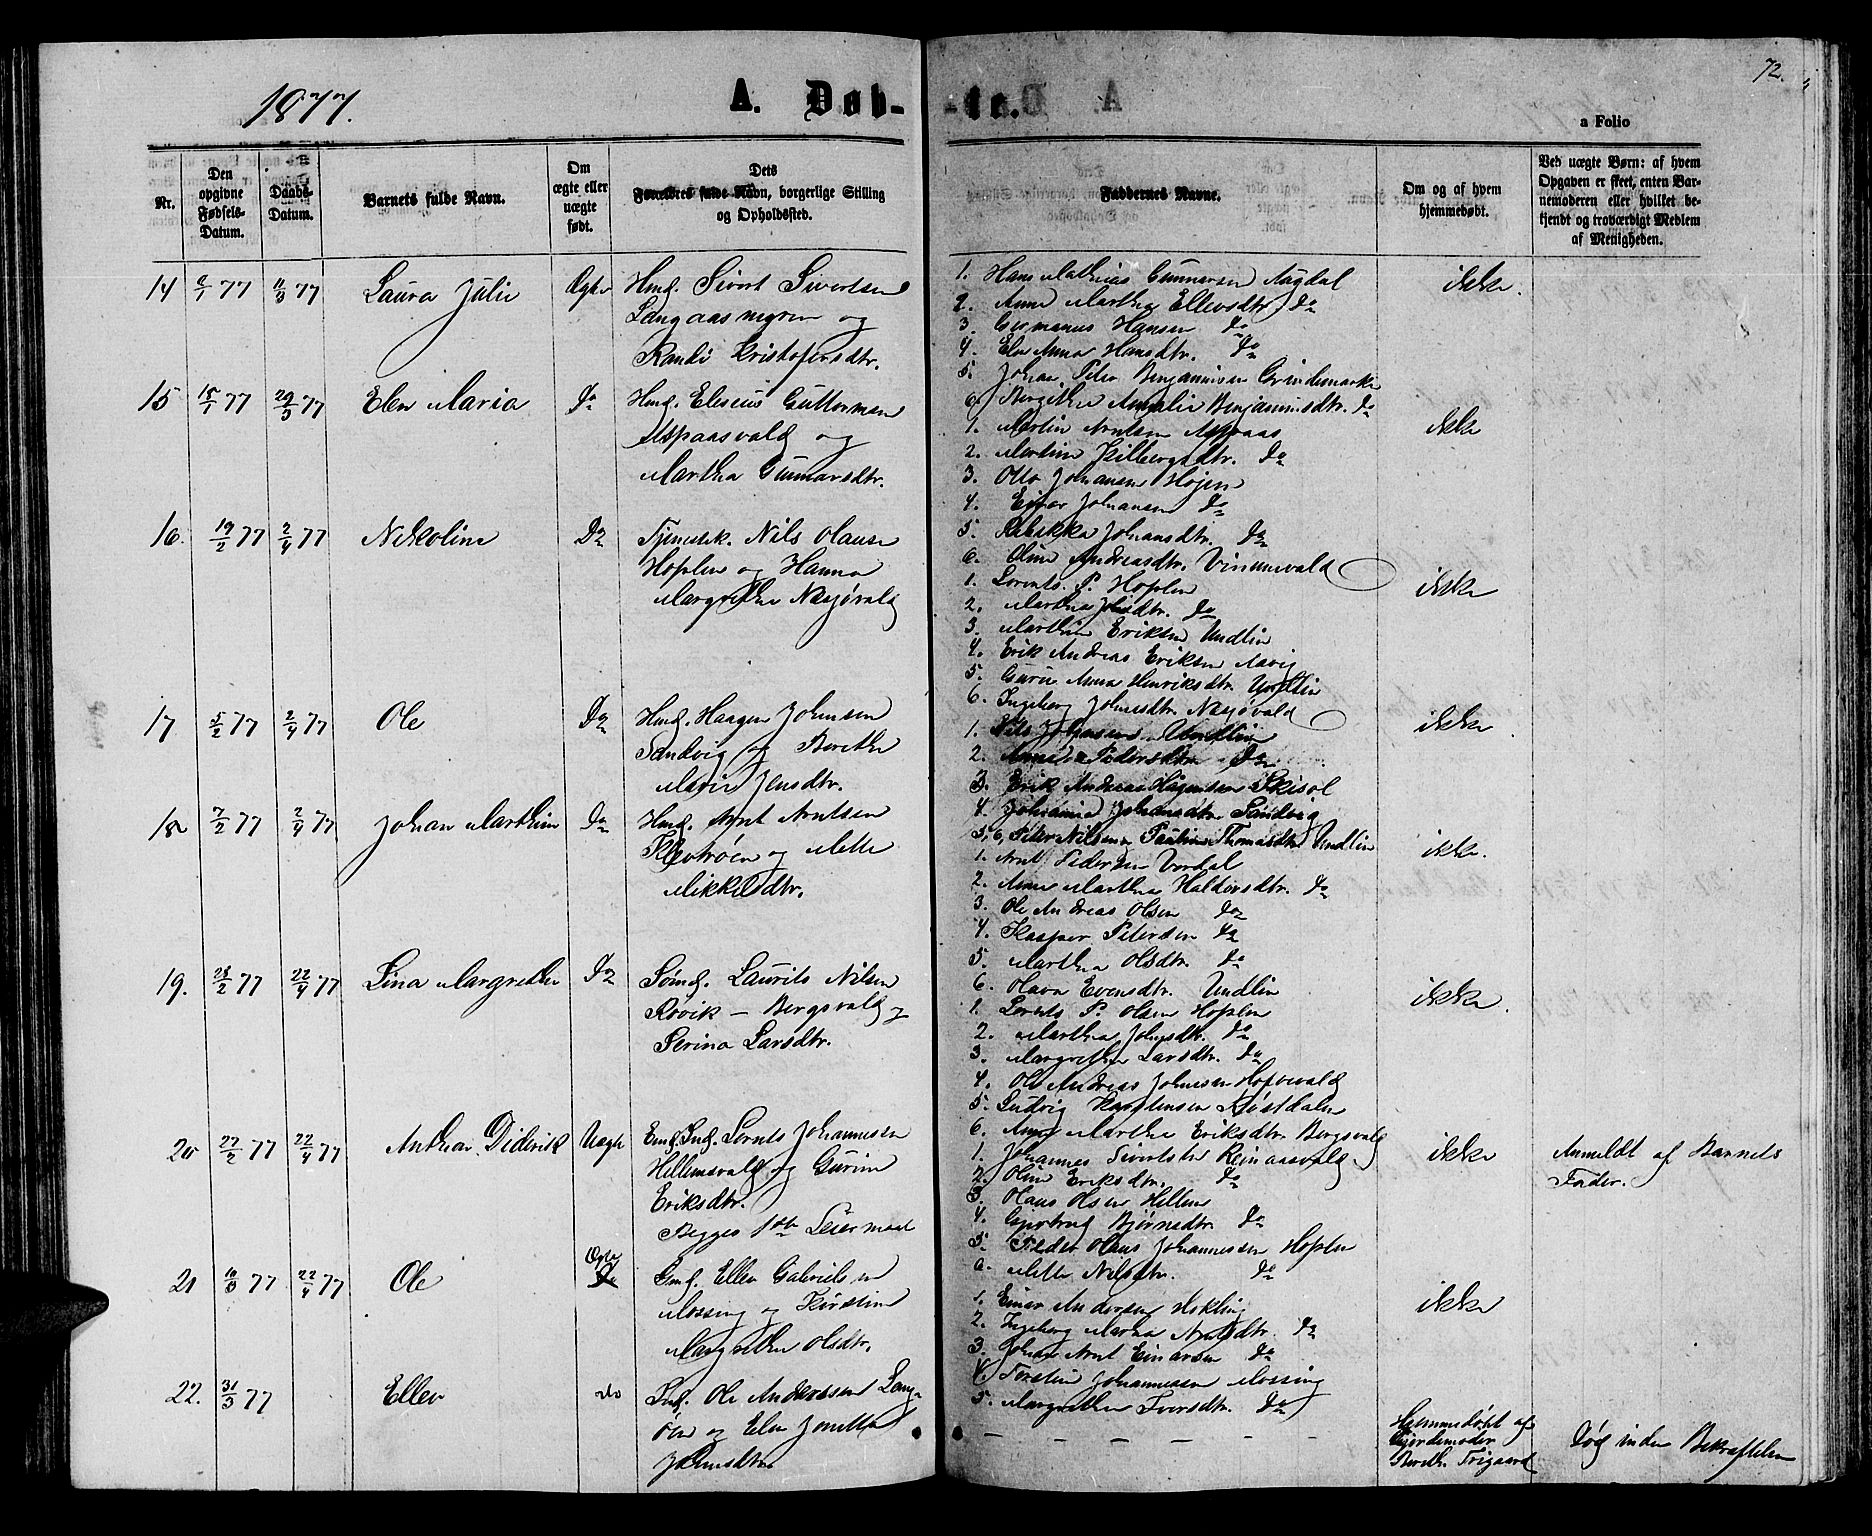 1877.
A. Døb-
te.
72.
a Folio
Nr.
Den opgivne Fødsels-Datum.
Daabs-Datum.
Barnets fulde Navn.
Om ægte eller uægte født.
Dets Forældres fulde Navn, borgerlige Stilling og Opholdssted.
Faddernes Navne.
Om og af hvem hjemmedøbt.
Ved uægte Børn: af hvem Opgaven er skeet, enten Barnemoderen eller hvilket bekjendt og troværdigt Medlem af Menigheden.
14 77 11/3 77 Laura Julie Ægte Hmd. Sivert Sivertsen
Langaasmyren og
Randi Kristofersdtr.
1. Hans Mathias Gunnarsen Aagdal
2. Anne Martha Ellevsdtr. Do
3. Germanus Hansen Do
4. Elen Anna Hansdtr. Do
5. Johan Peter Benjaminsen Grindemarka
6. Bergithe Amalie Benjaminsdtr. Do
ikke.
15 18/1 77 29/3 77 Elen Maria Do Hmd. Eliseus Guttormsen
Aspaasvald og
Martha Gunnarsdtr.
1. Martin Arntsen Aspaas
2. Martine Kilbergsdtr. Do
3. Otto Johansen Højen
4. Einar Johansen Do
5. Rebekka Johansdtr. Do
6. Oline Andreasdtr. Vinnevald
ikke
16. 19/2 77 2/4 77 Nikoline Do Tjenestk. Nils Olausen
Hoplen og Hanna
Margrethe Næsjøvald
1. Lorents P. Hoplen
2. Martha Johsdtr. Do
3. Marthin Eriksen Undlin
4. Erik Andreas Eriksen Aavig
5. Guru Anna Henriksdtr. Undlin
6. Ingeborg Johnsdtr. Næsjøvald
ikke
17 5/2 77 2/4 77 Ole Do Hmd. Haagen Johnsen
Sandvig og Berethe
Marie Jensdtr.
1. Nils Johnsen Undlin
2. Anna Pedersdtr. Do
3. Erik Andreas Hågensen Skisøl
4. Johanna Johansdtr. Sandvig
5, 6, Peter Nilsen og Pauline Thomasdtr. Undlin
ikke
18 7/2 77 2/4 77 Johan Marthin Do Hmd. Arnt Arntsen
Klevrøen og Mette
Mikkelsdtr.
1. Arnt Pedersen Vordal
2. Anne Martha Haldorsdtr. Do
3. Ole Andreas Olsen Do
4. Kasper Petersen Do
5. Martha Olsdtr. Do
6. Olava Evensdtr. Undlin
ikke.
19. 23/2 77 22/4 77 Lina Margrethe Do Sømd. Laurits Nilsen
Røvik – Bergsvald og
Serina Larsdtr.
1. Lornts P. Olsen Hoplen
2. Martha Johnsdtr. Do
3. Margrethe Larsdtr. Do
4. Ole Andreas Johnsen Hopvevald
5. Ludvig Karstensen Røstdalen
6. Anne Martha Eriksdtr. Bergsvald
ikke
20 27/2 77 22/4 77 Anthon Diderik Uægte Emd. Ind. Lornts Johannesen
Hellemsvald og Gurine
Eriksdtr.
Begges 1ste Leiermaal
1. Johannes Sivertsen Reinaasvald
2. Oline Eriksdtr. Do
3. Olaus Olsen Hellem
4. Gjertrud Bjørnsdtr. Do
5. Peder Olaus Johannessen Hoplen
6. Mette Nilsdtr. Do
ikke
Anmeldt af Barnets
Fader.
21 10/3 77 22/4 77 Ole Ægte Do Gmd. Ellev Gabrielsen
Mossing og Kirstine
Margrethe Olsdtr.
1. Einar Andersen Hokling
2. Ingeborg Marka Arntsdtr. Do
3. Johan Arnt Einarsen Do
4. Torstein Johannesen Mossing
5. Margrethe Iversdtr. Do
ikke
22. 31/3 77 Ellev do Ind. Ole Anderssen Lang-
øen og Elen Jonetta
Johnsdtr.
– – – – – –
Hjemmedøbt af
Gjordemoder
Berethe Trigaard
Død inden Bekræftelsen